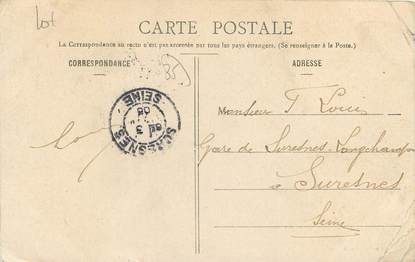 Lot
CARTE POSTALE
La Correspondance au recto n'est pas acceptée par tous les pays étrangers. (Se renseigner à la Poste.)
CORRESPONDANCE
ADRESSE
SURESNES
SEINE
08
Monsieur T Louis
Gare de Suresnes-Longchamp
à Suresnes
Seine